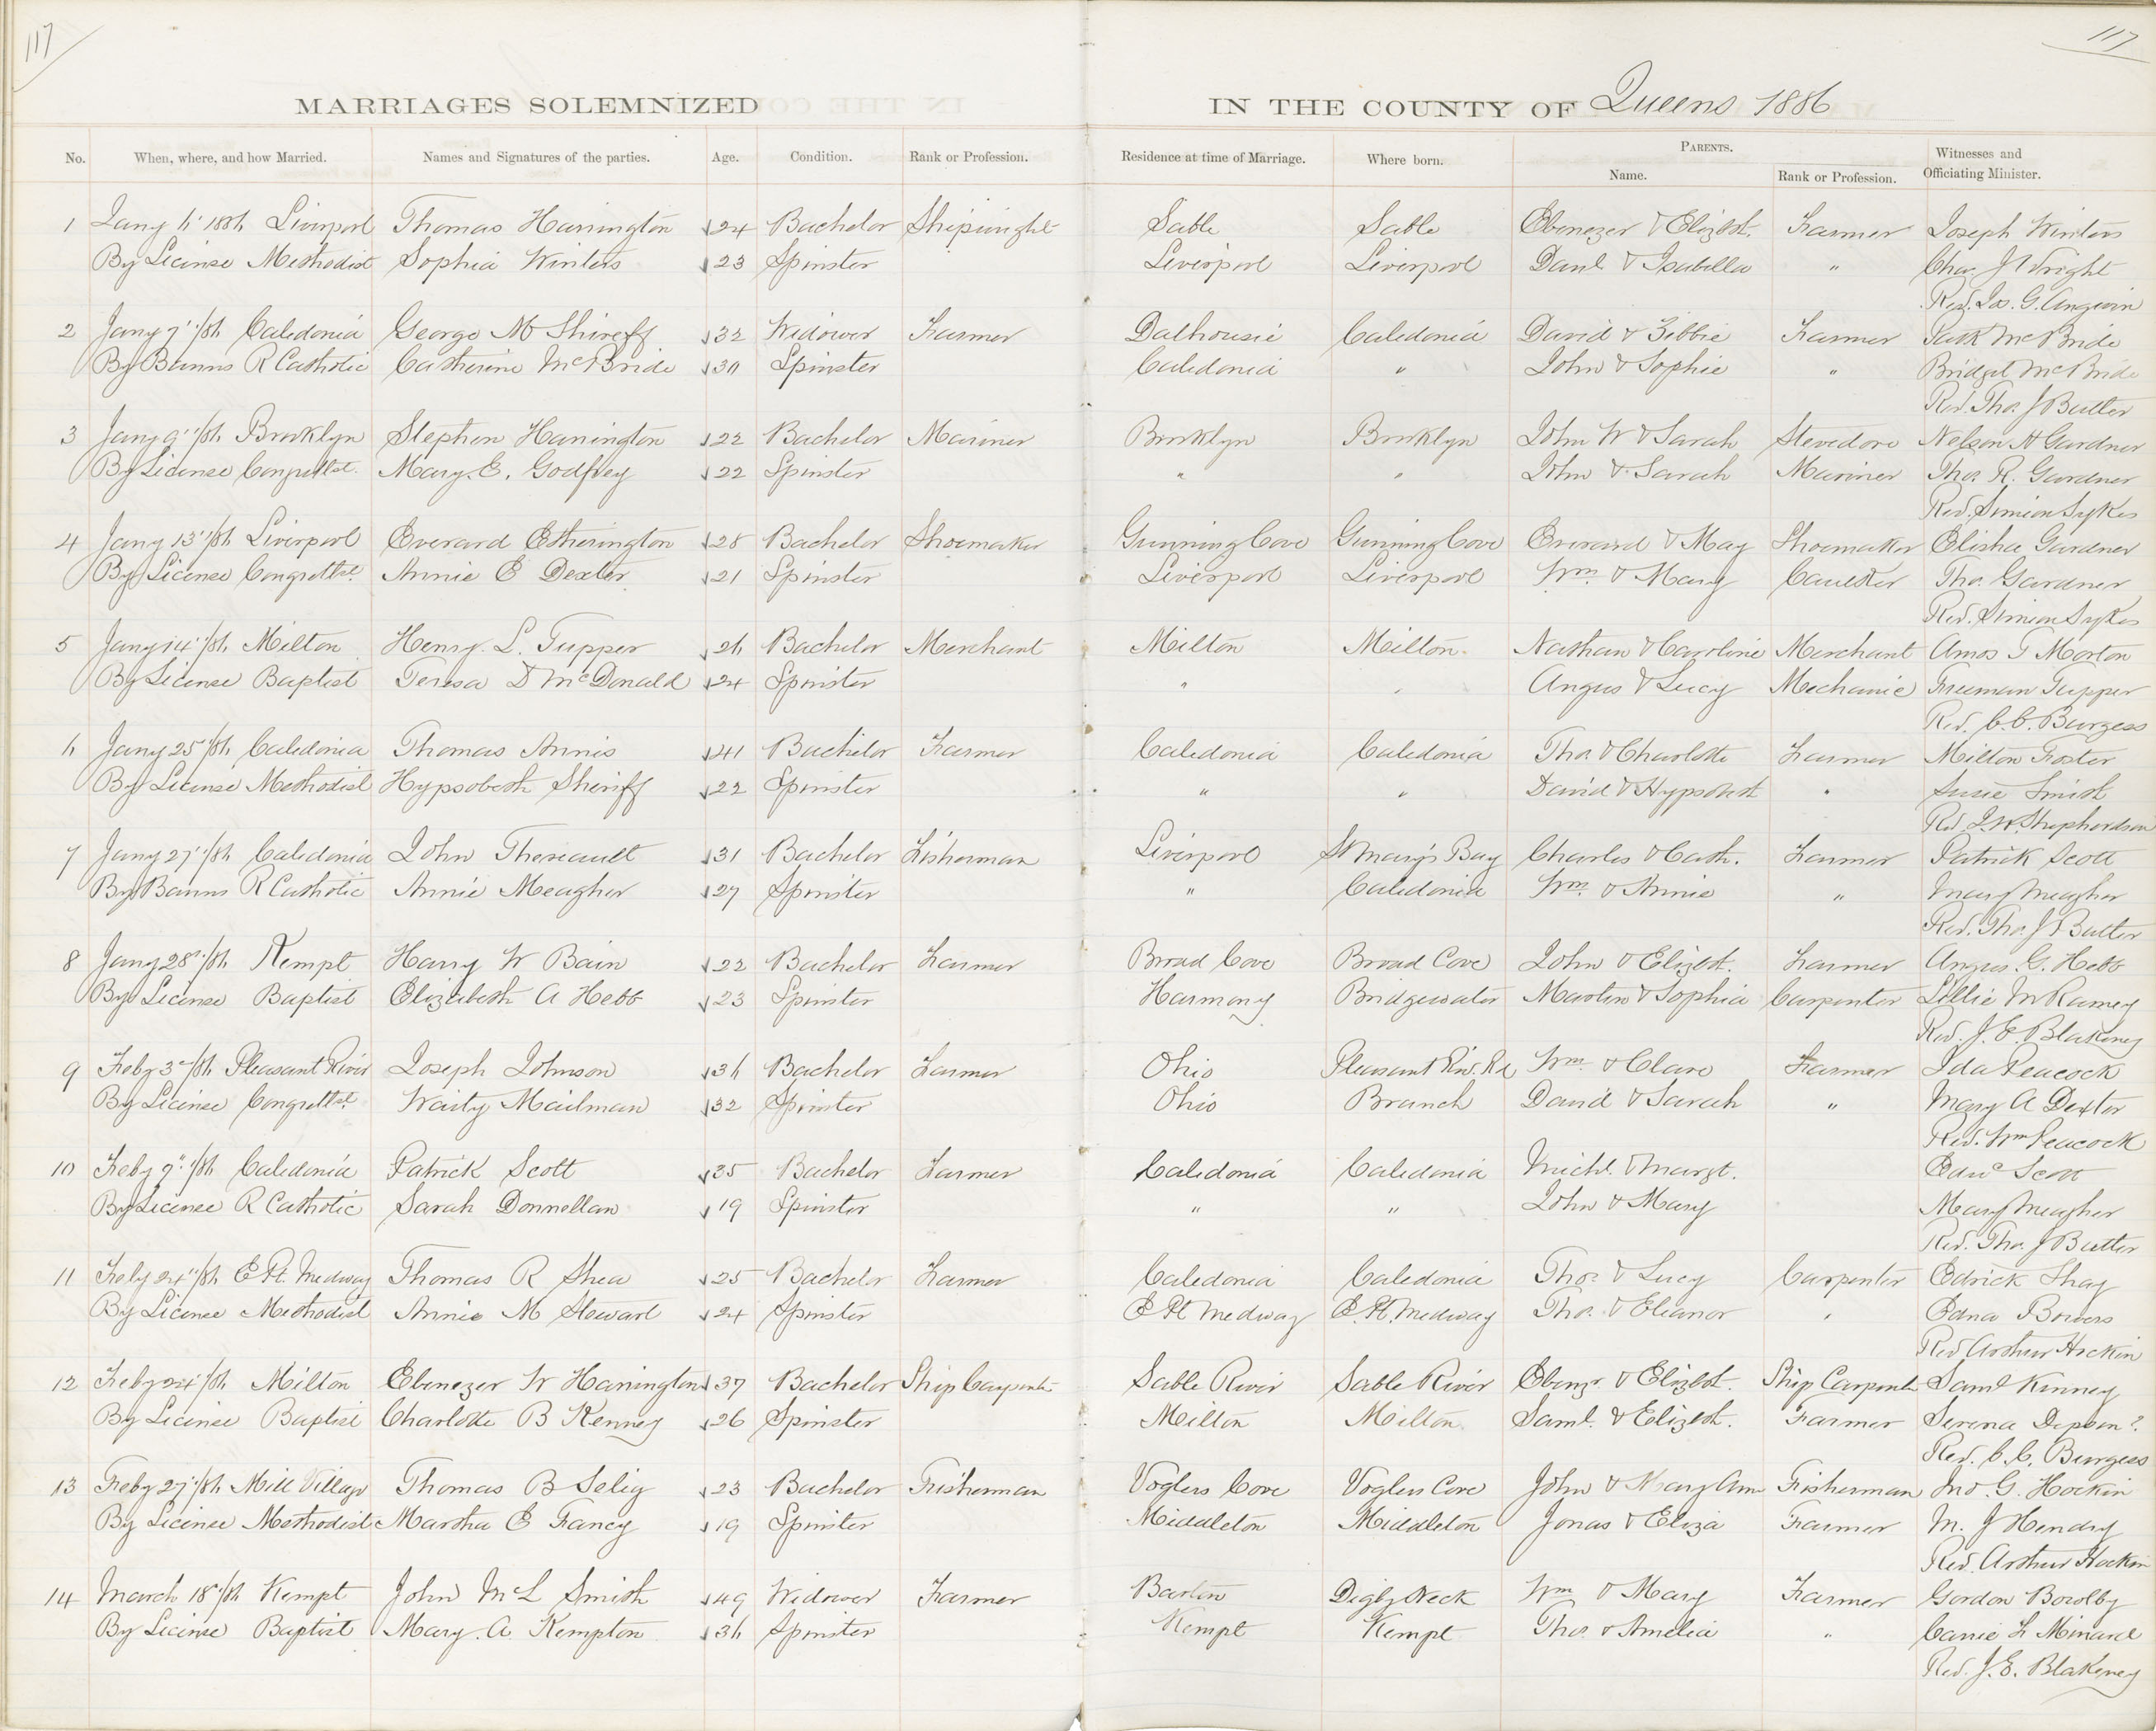 117
117
MARRIAGES SOLEMNIZED IN THE COUNTY OF Queens 1886
No. When, where, and how Married. Names and Signatures of the parties. Age. Condition. Rank or Profession. Residence at time of Marriage. Where born. PARENTS. Name. Rank or Profession. Witnesses and Officiating Minister.
1 Jany 6' 1886 Liverpool Thomas Harrington 24 Bachelor Shipwright Sable Sable Ebenezer & Elizbt. Farmer Joseph Winters
By License Methodist Sophia Winters 23 Spinster Liverpool Liverpool Danl & Isabella " Chas J Wright
Rev. Jos. G. Angwin
2 Jany 7' /86 Caledonia George M Shireff 32 Widower Farmer Dalhousie Caledonia David & Zibbie Farmer Patk McBride
By Banns R Catholic Catherine McBride 30 Spinster Caledonia " John & Sophie " Bridget McBride
Rev. Thos. J Butler
3 Jany 9'' /86 Brooklyn Stephen Harrington 22 Bachelor Mariner Brooklyn Brooklyn John W & Sarah Stevedore Nelson H Gardner
By License Congretlst. Mary. E. Godfrey 22 Spinster " " John & Sarah Mariner Thos R. Gardner
Rev. Simion Sykes
4 Jany 13' /86 Liverpool Everard Etherington 28 Bachelor Shoemaker Gunning Cove Gunning Cove Everard & May Shoemaker Elisha Gardner
By License Congretlst. Annie E Dexter 21 Spinster Liverpool Liverpool Wm. & Mary Caulker Thos. Gardner
Rev. Simion Sykes
5 Jany 14' /86 Milton Henry. L. Tupper 26 Bachelor Merchant Milton Milton Nathan & Caroline Merchant Amos T Morton
By License Baptist Teresa D McDonald 24 Spinster " " Angus & Lucy Mechanic Freeman Tupper
Rev. C. C. Burgess
6 Jany 25' /86 Caledonia Thomas Annis 41 Bachelor Farmer Caledonia Caledonia Thos & Charlotte Farmer Milton Foster
By License Methodist Hypsobeth Shiriff 22 Spinster " " David & Hypsobeth " Susie Smith
Rev J. W. Shepherdson
7 Jany 27' /86 Caledonia John Thereault 31 Bachelor Fisherman Liverpool St Mary's Bay Charles & Cath. Farmer Patrick Scott
By Banns R Catholic Annie Meagher 27 Spinster " Caledonia Wm. & Annie " Mary Meagher
Rev. Thos. J Butler
8 Jany 28' /86 Kempt Harry W Bain 22 Bachelor Farmer Broad Cove Broad Cove John & Elizbt. Farmer Angus. G. Hebb
By License Baptist Elizabeth A Hebb 23 Spinster Harmony Bridgewater Martin & Sophia Carpenter Lillie M Ramey
Rev. J. E. Blakeney
9 Feby 3 /86 Pleasant River Joseph Johnson 36 Bachelor Farmer Ohio Pleasant Riv. Rd Wm. & Clare Farmer Ida Peacock
By License Congretlst. Waity Mailman 32 Spinster Ohio Branch David & Sarah " Mary A Dexter
Rev. Wm Peacock
10 Feby 9'' /86 Caledonia Patrick Scott 35 Bachelor Farmer Caledonia Caledonia Michl. & Margt. Edwd Scott
By License R Catholic Sarah Donnellan 19 Spinster " " John & Mary Mary Meagher
Rev. Thos. J Butler
11 Feby 24'' /86 E Pt. Medway Thomas R Shea 25 Bachelor Farmer Caledonia Caledonia Thos. & Lucy Carpenter Edrick Shay
By License Methodist Annie M Stewart 24 Spinster E Pt Medway E. Pt. Medway Thos. & Eleanor " Edna Bowers
Rev Arthur Hockin
12 Feby 24' /86 Milton Ebenezer W Harrington 37 Bachelor Ship Carpenter Sable River Sable River Ebenzr. & Elizbt. Ship Carpenter Saml Kinney
By License Baptist Charlotte B Kenney 26 Spinster Milton Milton Saml. & Elizbt. Farmer Serena ?
Rev. C. C. Burgess
13 Feby 27' /86 Mill Village Thomas B Selig 23 Bachelor Fisherman Voglers Cove Voglers Cove John & Mary Ann Fisherman Jno. G. Hockin
By License Methodist Martha E Fancy 19 Spinster Middleton Middleton Jonas & Eliza Farmer M. J Hendry
Rev. Arthur Hockin
14 March 18' /86 Kempt John McL Smith 49 Widower Farmer Barton Digby Neck Wm & Mary Farmer Gordon
By License Baptist Mary. A. Kempton 36 Spinster Kempt Kempt Thos. & Amelia " Carrie L Minard
Rev. J. E. Blakeney